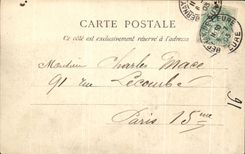 CARTE POSTALE
Ce côté est exclusivement réservé à l'adresse
Monsieur Charles Macé
91 rue Lecourbe
Paris 15me
91